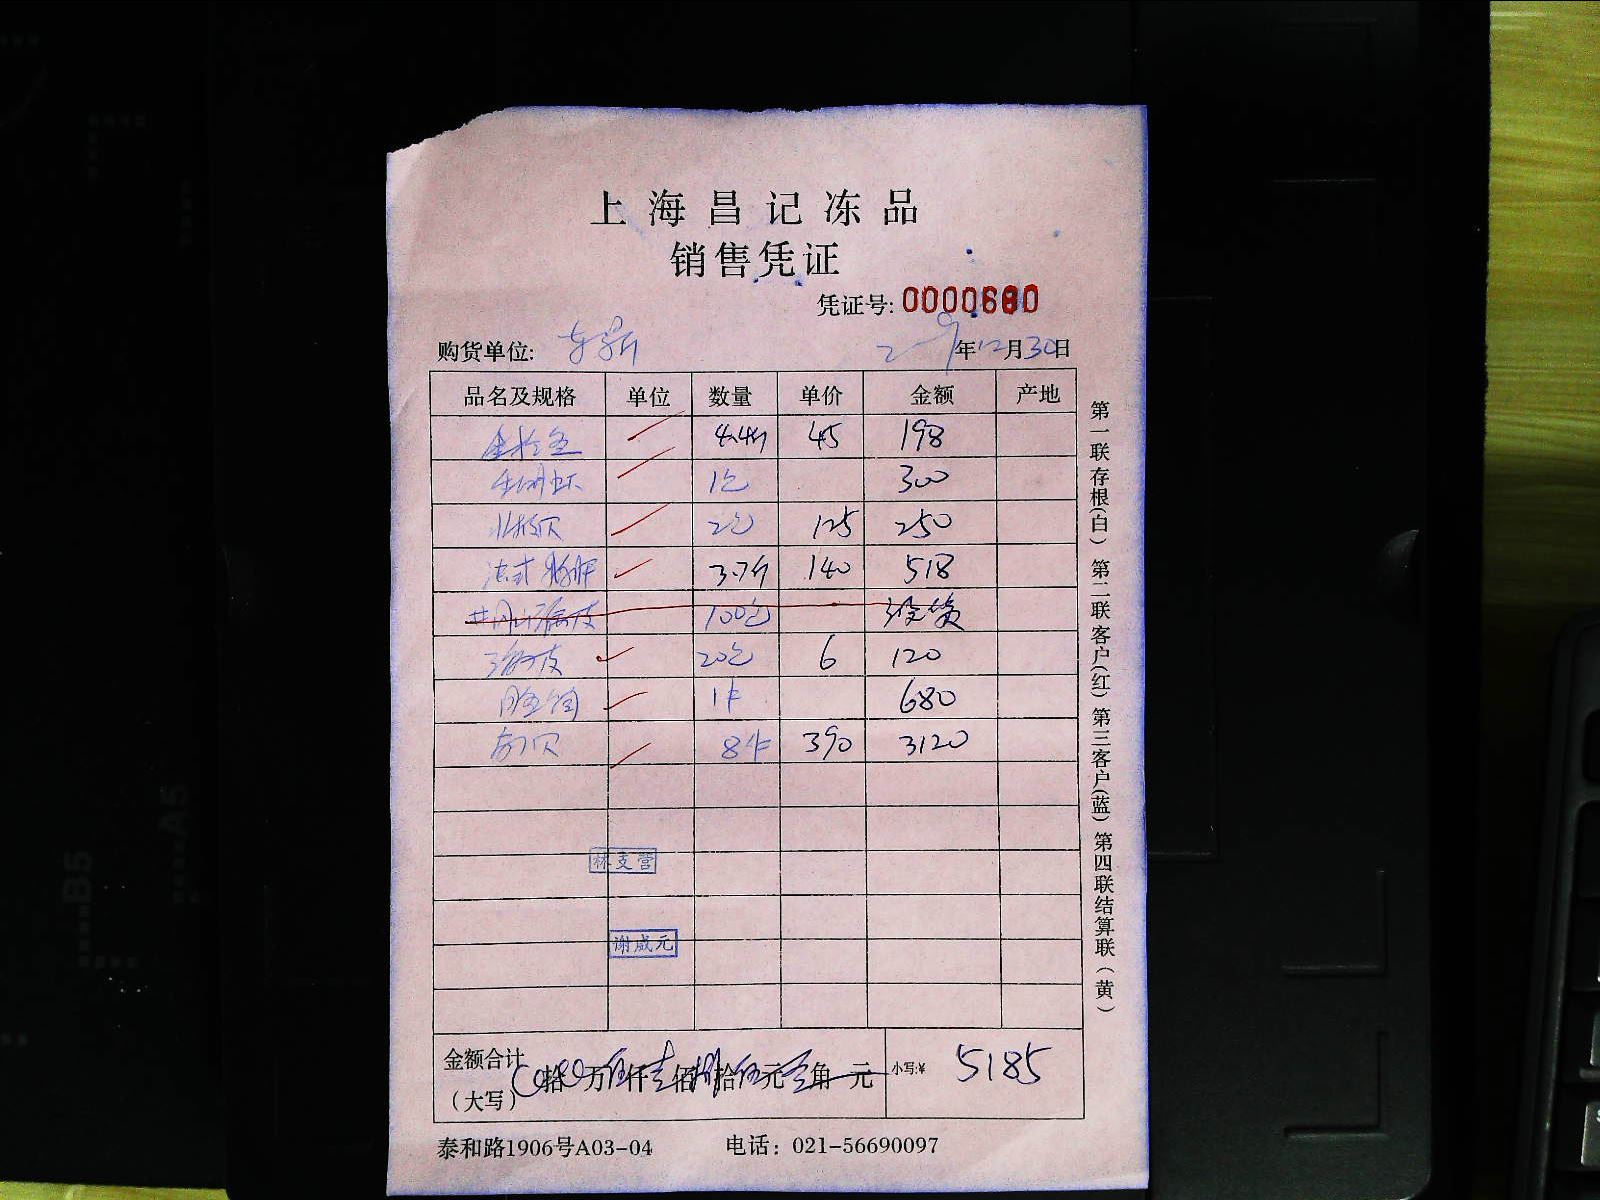 上海昌记冻品
销售凭证
凭证号: 0000680
购货单位:
年12月30日
品名及规格 单位 数量 单价 金额 产地
4.4斤 45 198
1包 300
北极贝 2包 125 250
法式 3.7斤 140 518
100包 没货
海皮 20包 6 120
1件 680
8件 390 3120
林支营
谢成元
金额合计 拾 万伍仟壹佰捌拾伍元 角 元 小写:¥ 5185
(大写)
泰和路1906号A03-04 电话: 021-56690097
第一联存根(白) 第二联客户(红) 第三客户(蓝) 第四联结算联(黄)